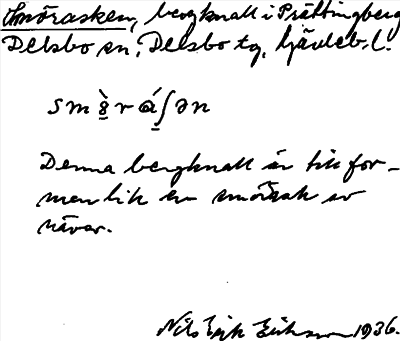 Smörasken, bergknall i Prästingberg
Delsbo sn, Delsbo tg, Gävleb. l.
smörasʃən
Denna bergknall är till for-
men lik en smörask av
näver.
Nils Erik Eriksson 1936.